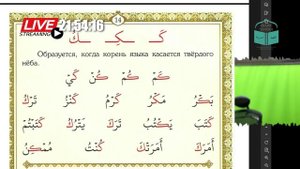 LIVE 21:54:16
STREAMING
14
كَـ ـكِـ ـكُ
Образуется, когда корень языка касается твёрдого
нёба.
كَمْ كُمْ كُنْ كَيْ
بَكْرٌ مَكْرٌ كَرَمٌ كَنْزٌ تَرَكَ
كَتَبَ يَكْتُبُ تَرَكَ يَتْرُكُ كَتَبْتُمْ
أَمَرَكَ أَمَرَتْكَ كُنْتُ مُمْكِنٌ